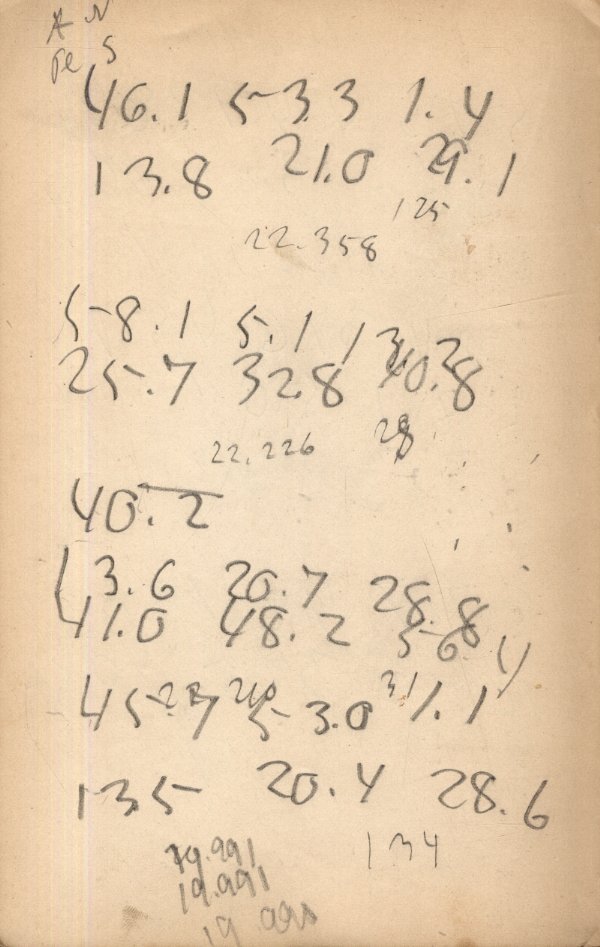 A N
Te S
46.1 53.3 1.4
13.8 21.0 29.1
125
22.358
58.1 5.1 13.2
25.7 32.8 40.8
22.226 28
40.2
13.6 20.7 28.8
41.0 48.2 56.4
45.7 53.0 1.1
135 20.4 28.6
134
19.991
19.991
19